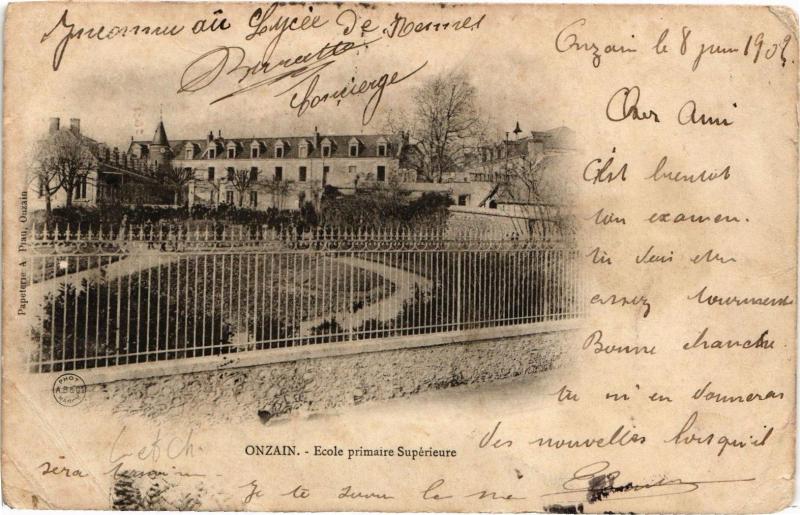 Inconnu au Lycée de Rennes
Concierge
Onzain le 8 juin 1902
Cher Ami
C'est bientot
ton examen.
tu dois etre
assez tourmenté
Bonne chanche.
tu m'en donneras
des nouvelles lorsqu'il
sera terminé
Je te serre la
Papeterie A. Piau, Onzain
PHOT
ONZAIN. - Ecole primaire Supérieure